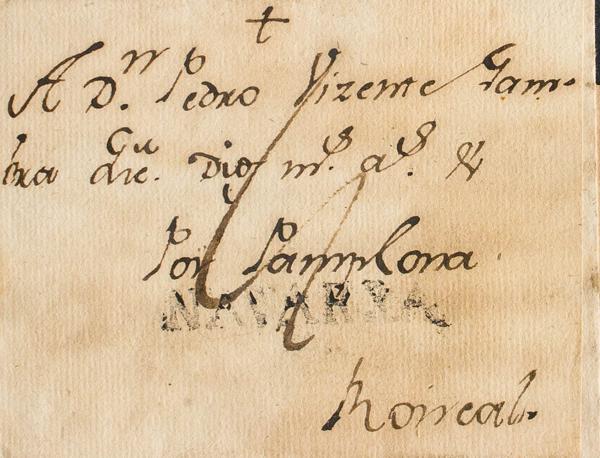 +
A D.ⁿ Pedro Vizente Gam-
bra gu.ᵈᵉ Dios m.ˢ a.ˢ &
Por Pamplona
NAVARRA
Roncal.